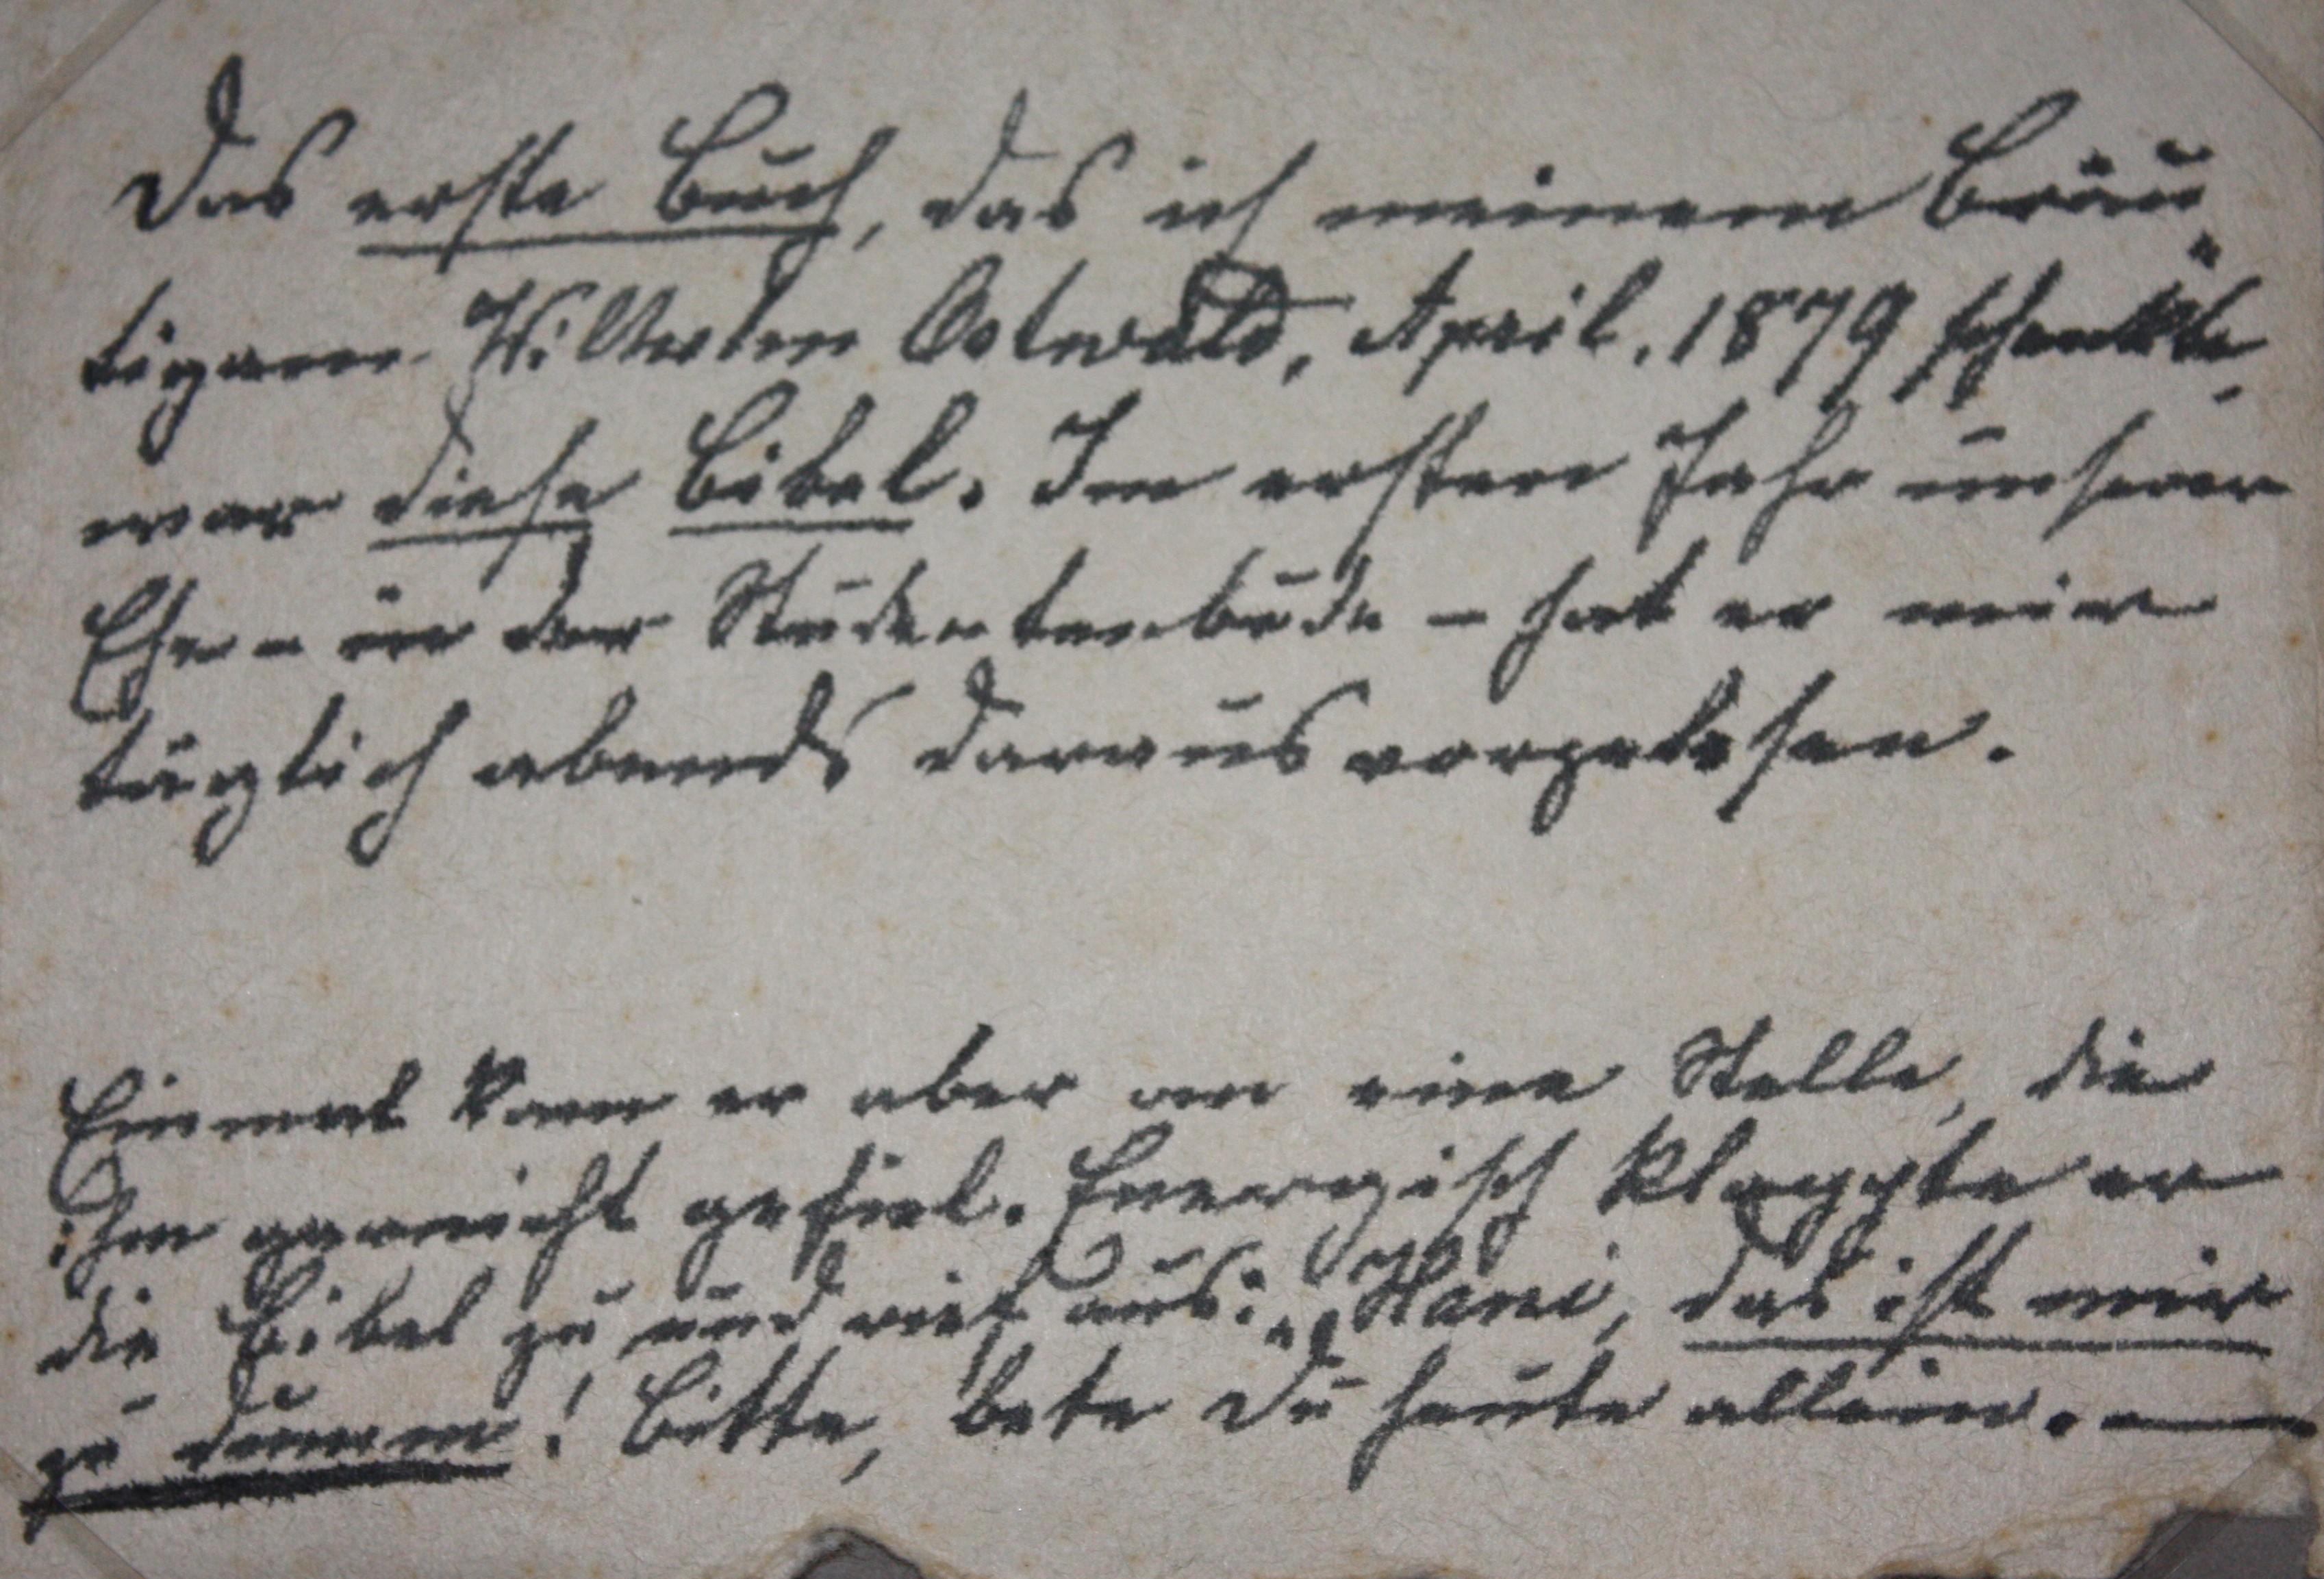 Das erste Buch, das ich meinem Bräu-
tigam Wilhelm Ostwald, April, 1879 schenkte,
war diese Bibel. Im ersten Jahr unserer
Ehe - in der Studentenbude - hat er mir
täglich abends daraus vorgelesen.
Einmal kam er aber an eine Stelle, die
ihm garnicht gefiel. Energisch klappte er
die Bibel zu und rief aus: „Hani, das ist mir
zu dumm! Bitte, bete Du heute allein. —